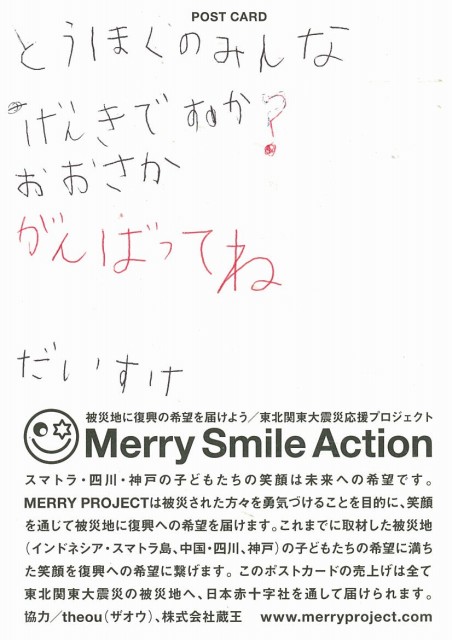 POST CARD
とうほくのみんな
げんきですか?
おおさか
がんばってね
だいすけ
被災地に復興の希望を届けよう/東北関東大震災応援プロジェクト
Merry Smile Action
スマトラ・四川・神戸の子どもたちの笑顔は未来への希望です。
MERRY PROJECTは被災された方々を勇気づけることを目的に、笑顔
を通じて被災地に復興への希望を届けます。これまでに取材した被災地
(インドネシア・スマトラ島、中国・四川、神戸)の子どもたちの希望に満ち
た笑顔を復興への希望に繋げます。このポストカードの売上げは全て
東北関東大震災の被災地へ、日本赤十字社を通して届けられます。
協力/theou(ザオウ)、株式会社蔵王 www.merryproject.com